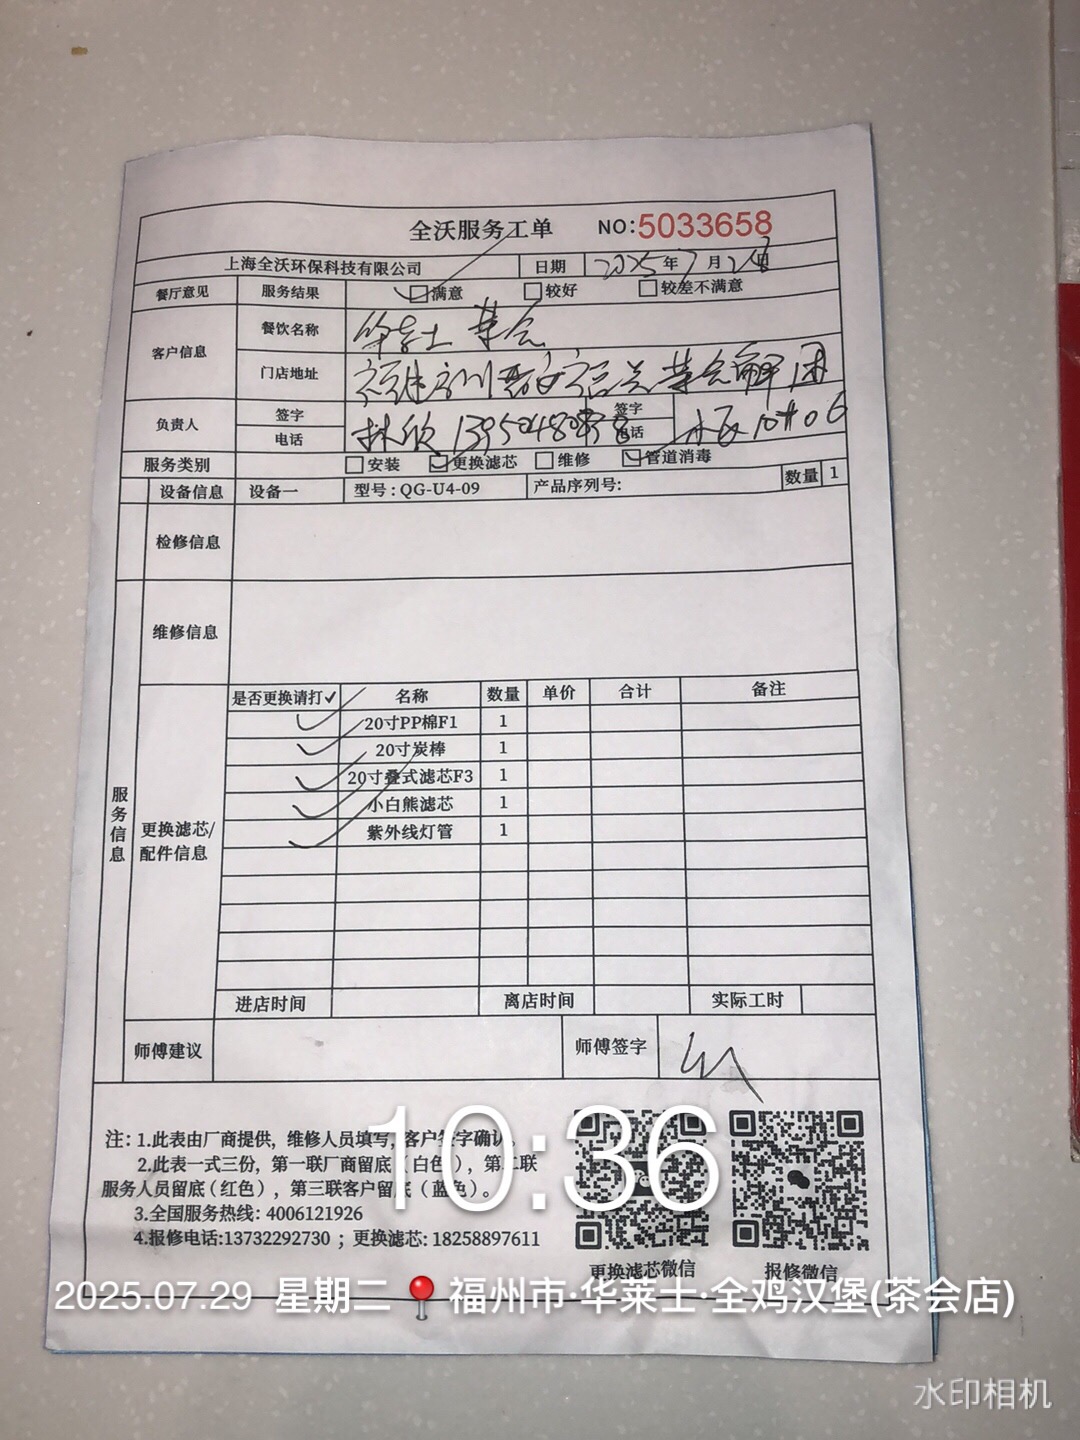 全沃服务工单 NO:5033658
上海全沃环保科技有限公司 日期 2025年7月
餐厅意见 服务结果 满意 较好 较差不满意
客户信息 餐饮名称 华莱士 茶会
门店地址 福建
负责人 签字 林欣 签字
电话 电话
服务类别 安装 更换滤芯 维修 管道消毒
设备信息 设备一 型号:QG-U4-09 产品序列号: 数量 1
检修信息
维修信息
服务信息
更换滤芯/
配件信息
是否更换请打✓ 名称 数量 单价 合计 备注
✓ 20寸PP棉F1 1
✓ 20寸炭棒 1
✓ 20寸叠式滤芯F3 1
✓ 小白熊滤芯 1
✓ 紫外线灯管 1
进店时间 离店时间 实际工时
师傅建议 师傅签字
注:1.此表由厂商提供,维修人员填写,客户签字确认。
2.此表一式三份,第一联厂商留底(白色),第二联
服务人员留底(红色),第三联客户留底(蓝色)。
3.全国服务热线:4006121926
4.报修电话:13732292730;更换滤芯:18258897611
更换滤芯微信 报修微信
10:36
2025.07.29 星期二 福州市·华莱士·全鸡汉堡(茶会店)
水印相机